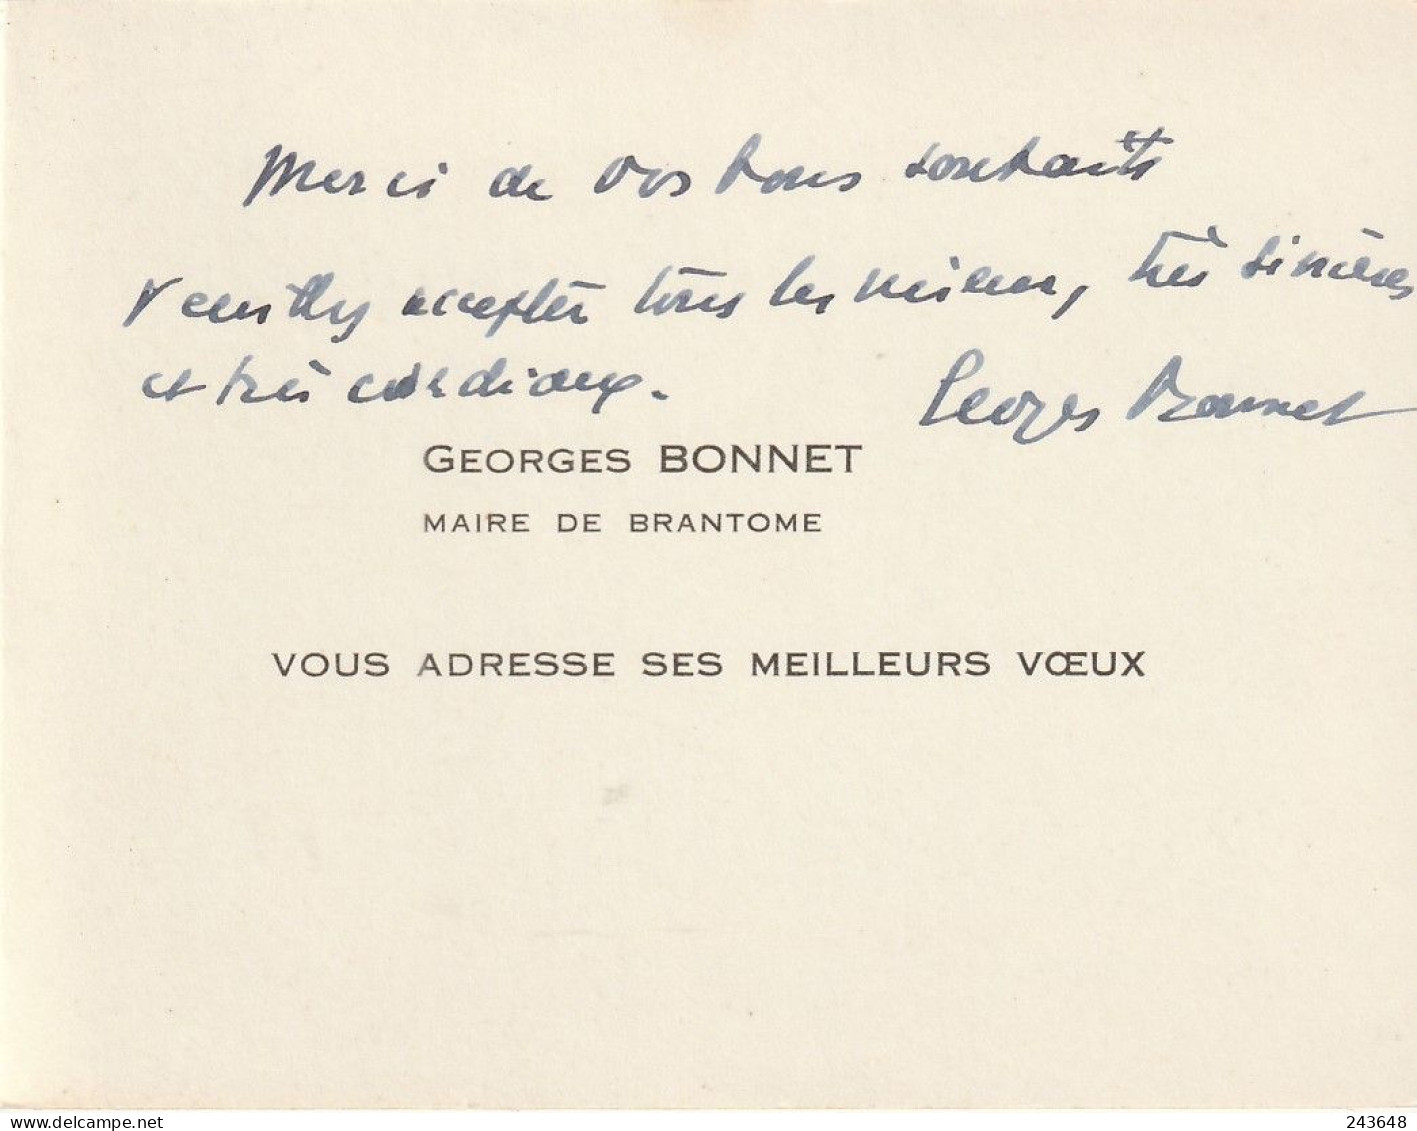 Merci de vos bons souhaits
Veuillez accepter tous les miens, très sincères
et très cordiaux.
Georges Bonnet
GEORGES BONNET
MAIRE DE BRANTOME
VOUS ADRESSE SES MEILLEURS VŒUX
www.delcampe.net
243648